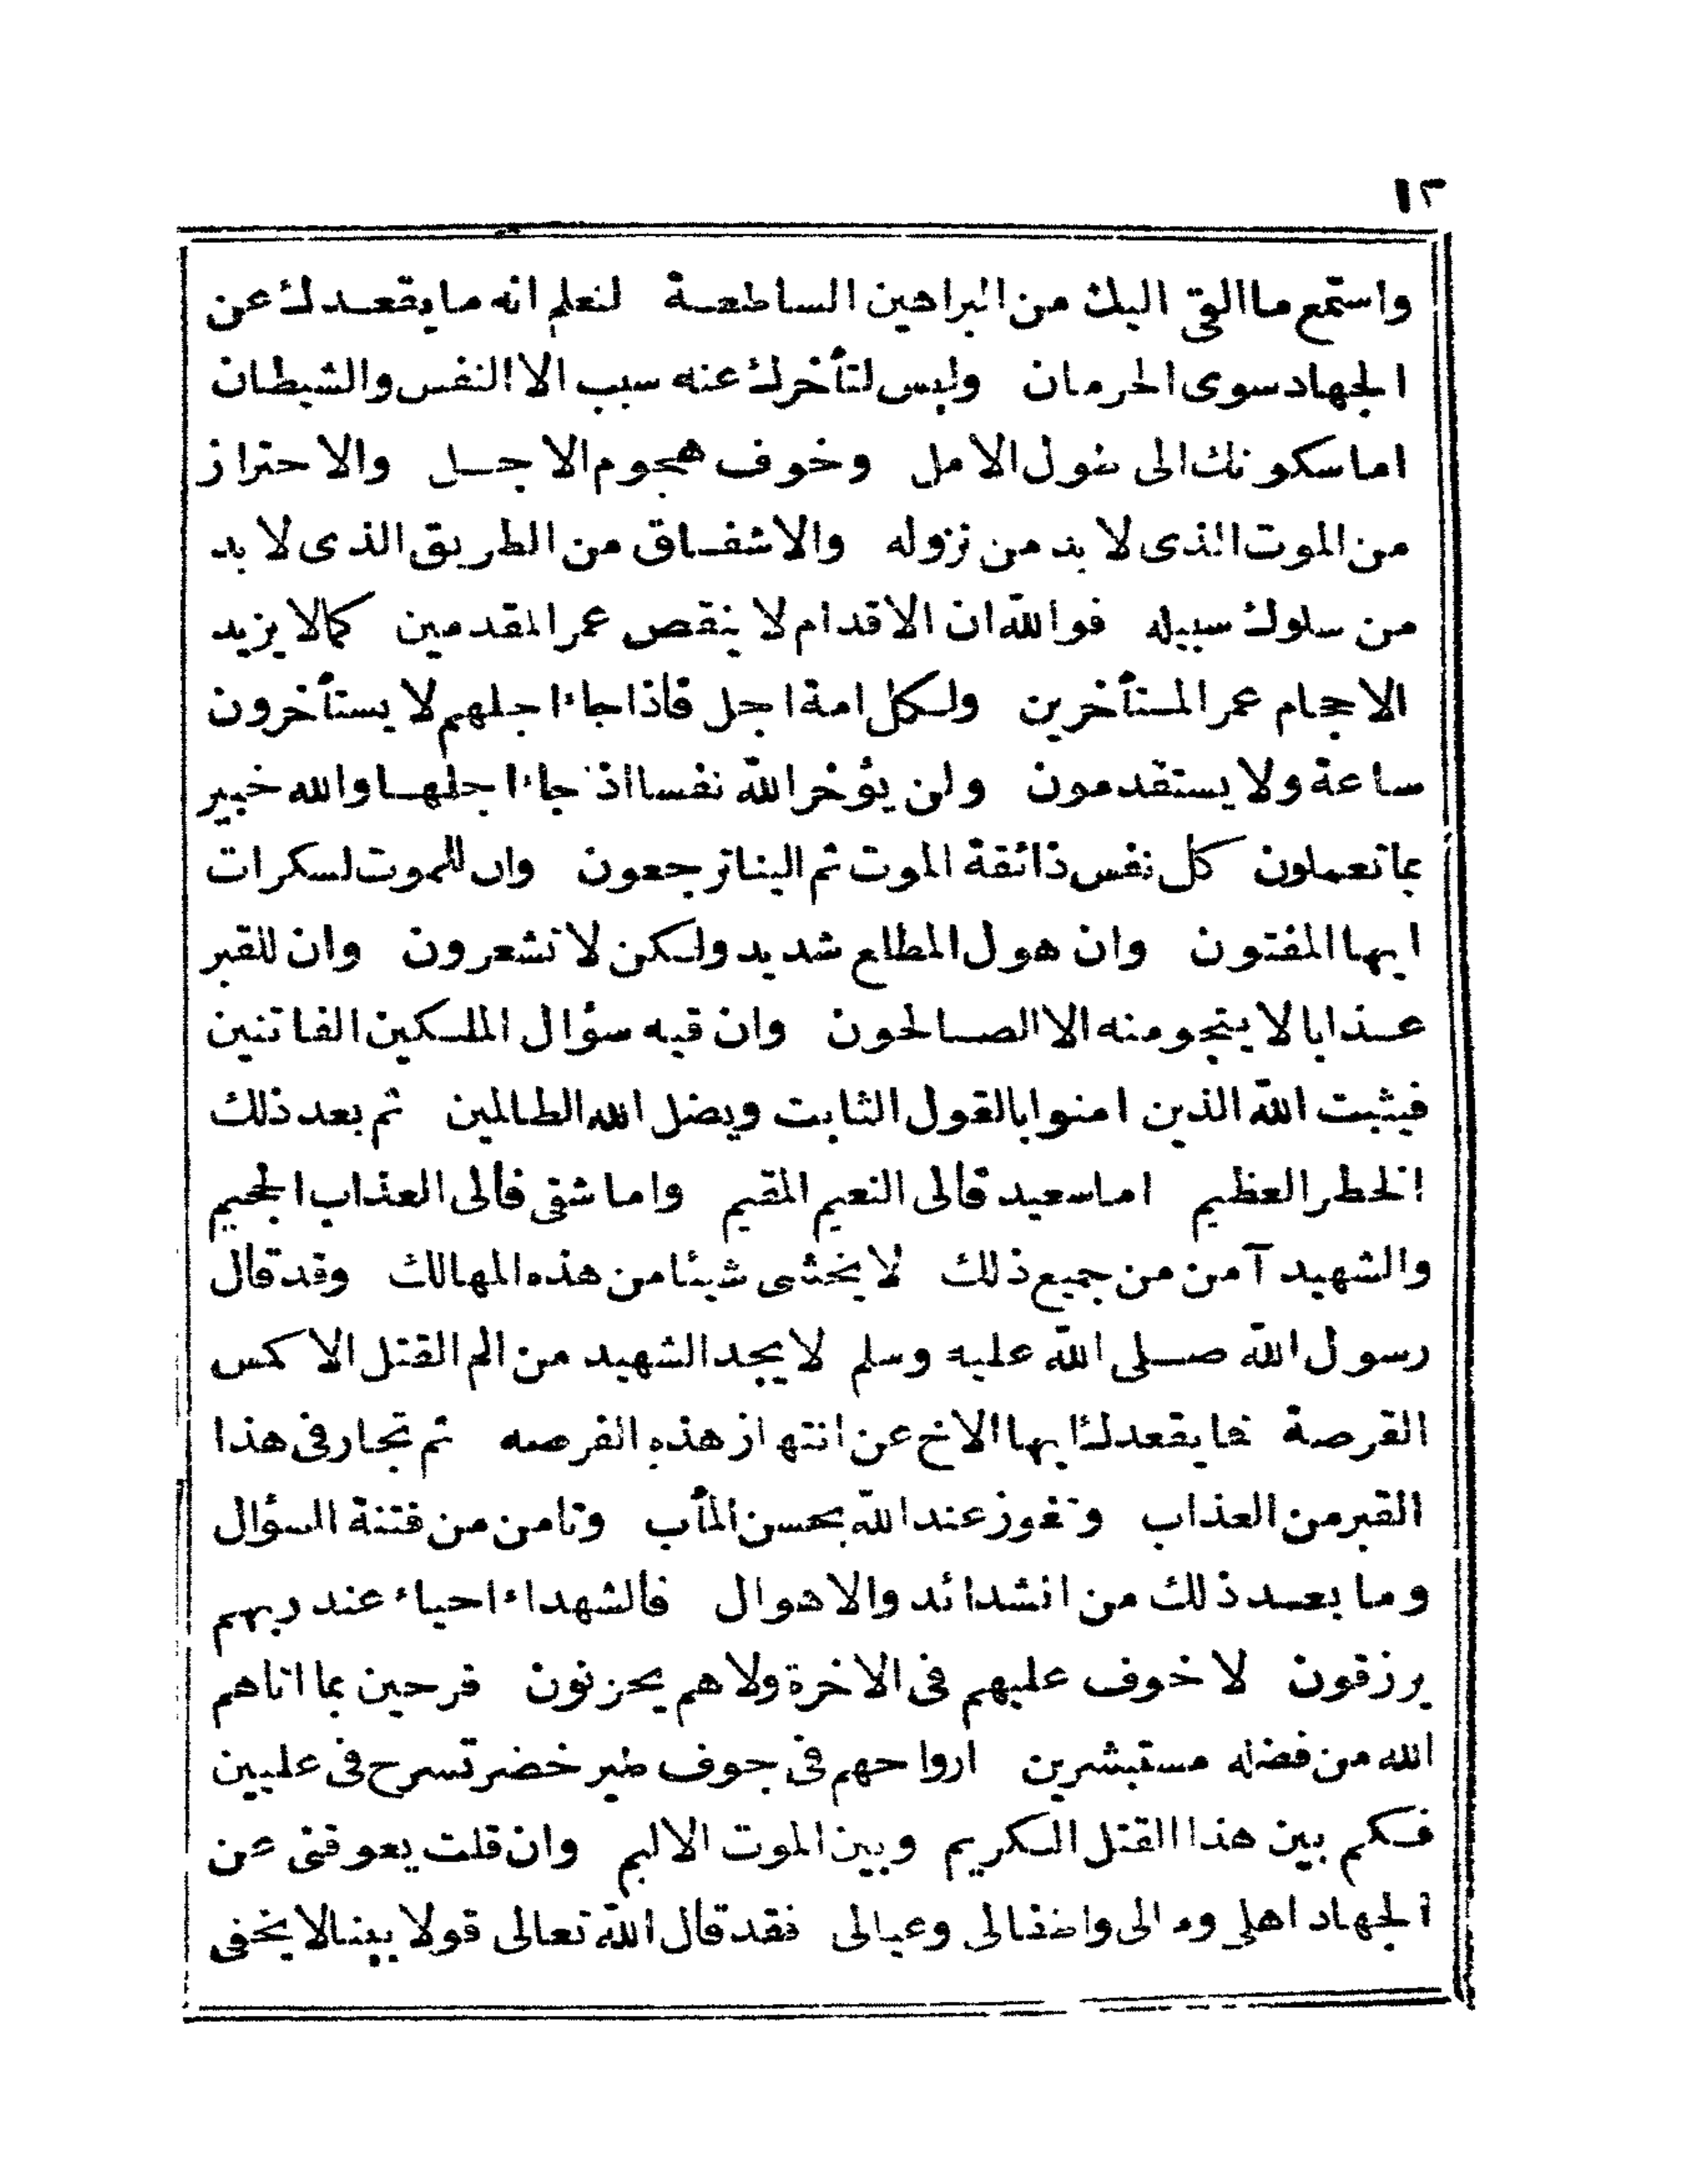 ١٢
واستمع ما القى اليك من البراهين الساطعة لتعلم انه ما يقعدك عن
الجهاد سوى الحرمان وليس لتأخرك عنه سبب الا النفس والشيطان
اما سكونك الى طول الامل وخوف هجوم الاجل والاحتراز
من الموت الذى لا بد من نزوله والاشفاق من الطريق الذى لا بد
من سلوك سبيله فوالله ان الاقدام لا ينقص عمر المقدمين كما لا يزيد
الاحجام عمر المستأخرين ولكل امة اجل فاذا جاء اجلهم لا يستأخرون
ساعة ولا يستقدمون ولن يؤخر الله نفسا اذا جاء اجلها والله خبير
بما تعملون كل نفس ذائقة الموت ثم الينا ترجعون وان للموت لسكرات
ايها المفتون وان هول المطلع شديد ولكن لا تشعرون وان للقبر
عذابا لا ينجو منه الا الصالحون وان فيه سؤال الملكين الفاتنين
فيثبت الله الذين امنوا بالقول الثابت ويضل الله الظالمين ثم بعد ذلك
الخطر العظيم اما سعيد فالى النعيم المقيم واما شقى فالى العذاب الجحيم
والشهيد آمن من جميع ذلك لا يخشى شيئا من هذه المهالك وقد قال
رسول الله صلى الله عليه وسلم لا يجد الشهيد من الم القتل الا كمس
القرصة فما يقعدك ايها الاخ عن انتهاز هذه الفرصه ثم تجار فى هذا
القبر من العذاب وتفوز عند الله بحسن المأب وتامن من فتنة السؤال
وما بعد ذلك من الشدائد والاهوال فالشهداء احياء عند ربهم
يرزقون لا خوف عليهم فى الاخرة ولا هم يحزنون فرحين بما اتاهم
الله من فضله مستبشرين ارواحهم فى جوف طير خضر تسرح فى عليين
فكم بين هذا القتل الكريم وبين الموت الاليم وان قلت يعوقنى عن
الجهاد اهلى ومالى واطفالى وعيالى فقد قال الله تعالى قولا بينا لا يخفى